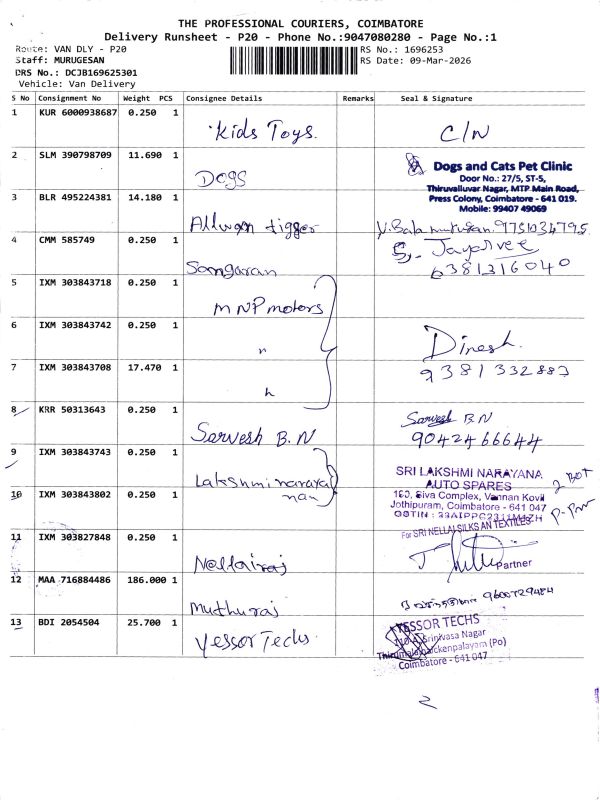 THE PROFESSIONAL COURIERS, COIMBATORE
Delivery Runsheet - P20 - Phone No.:9047080280 - Page No.:1
Route: VAN DLY - P20
Staff: MURUGESAN
DRS No.: DCJB169625301
Vehicle: Van Delivery
RS No.: 1696253
RS Date: 09-Mar-2026
S No Consignment No Weight PCS Consignee Details Remarks Seal & Signature
1 KUR 6000938687 0.250 1
Kids Toys. C/N
2 SLM 390798709 11.690 1
Dogs
Dogs and Cats Pet Clinic
Door No.: 27/5, ST-5,
Thiruvalluvar Nagar, MTP Main Road,
Press Colony, Coimbatore - 641 019.
Mobile: 99407 49069
3 BLR 495224381 14.180 1
Allwyn tigger
V. Bala murugan. 9751034795
4 CMM 585749 0.250 1
Sangaran
S. Jayshree
6381316040
5 IXM 303843718 0.250 1
MNP motors
6 IXM 303843742 0.250 1
"
Dinesh.
9381332883
7 IXM 303843708 17.470 1
"
8 KRR 50313643 0.250 1
Sarvesh B.N
Sarvesh B.N
9042466644
9 IXM 303843743 0.250 1
Lakshminaraya
nan
SRI LAKSHMI NARAYANA
AUTO SPARES
Siva Complex, Vannan Kovil
Jothipuram, Coimbatore - 641 047
GSTIN :
10 IXM 303843802 0.250 1
11 IXM 303827848 0.250 1
Nellairaj
For SRI NELLAI SILKS AN TEXTILES
Partner
12 MAA 716884486 186.000 1
Muthuraj
9600729484
13 BDI 2054504 25.700 1
Yessor Techs
YESSOR TECHS
Srinivasa Nagar
(Po)
Coimbatore - 641 047
2